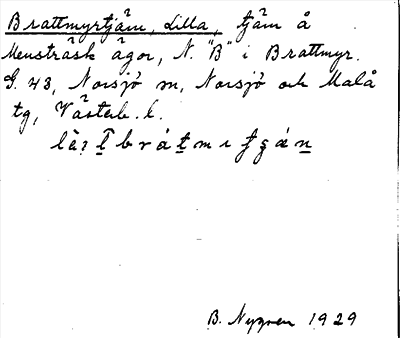 Brattmyrtjärn, Lilla, tjärn å
Mensträsk ägor, N. "B" i Brattmyr.
G. 43, Norsjö sn, Norsjö och Malå
tg, Västerb. l.
B. Nygren 1929